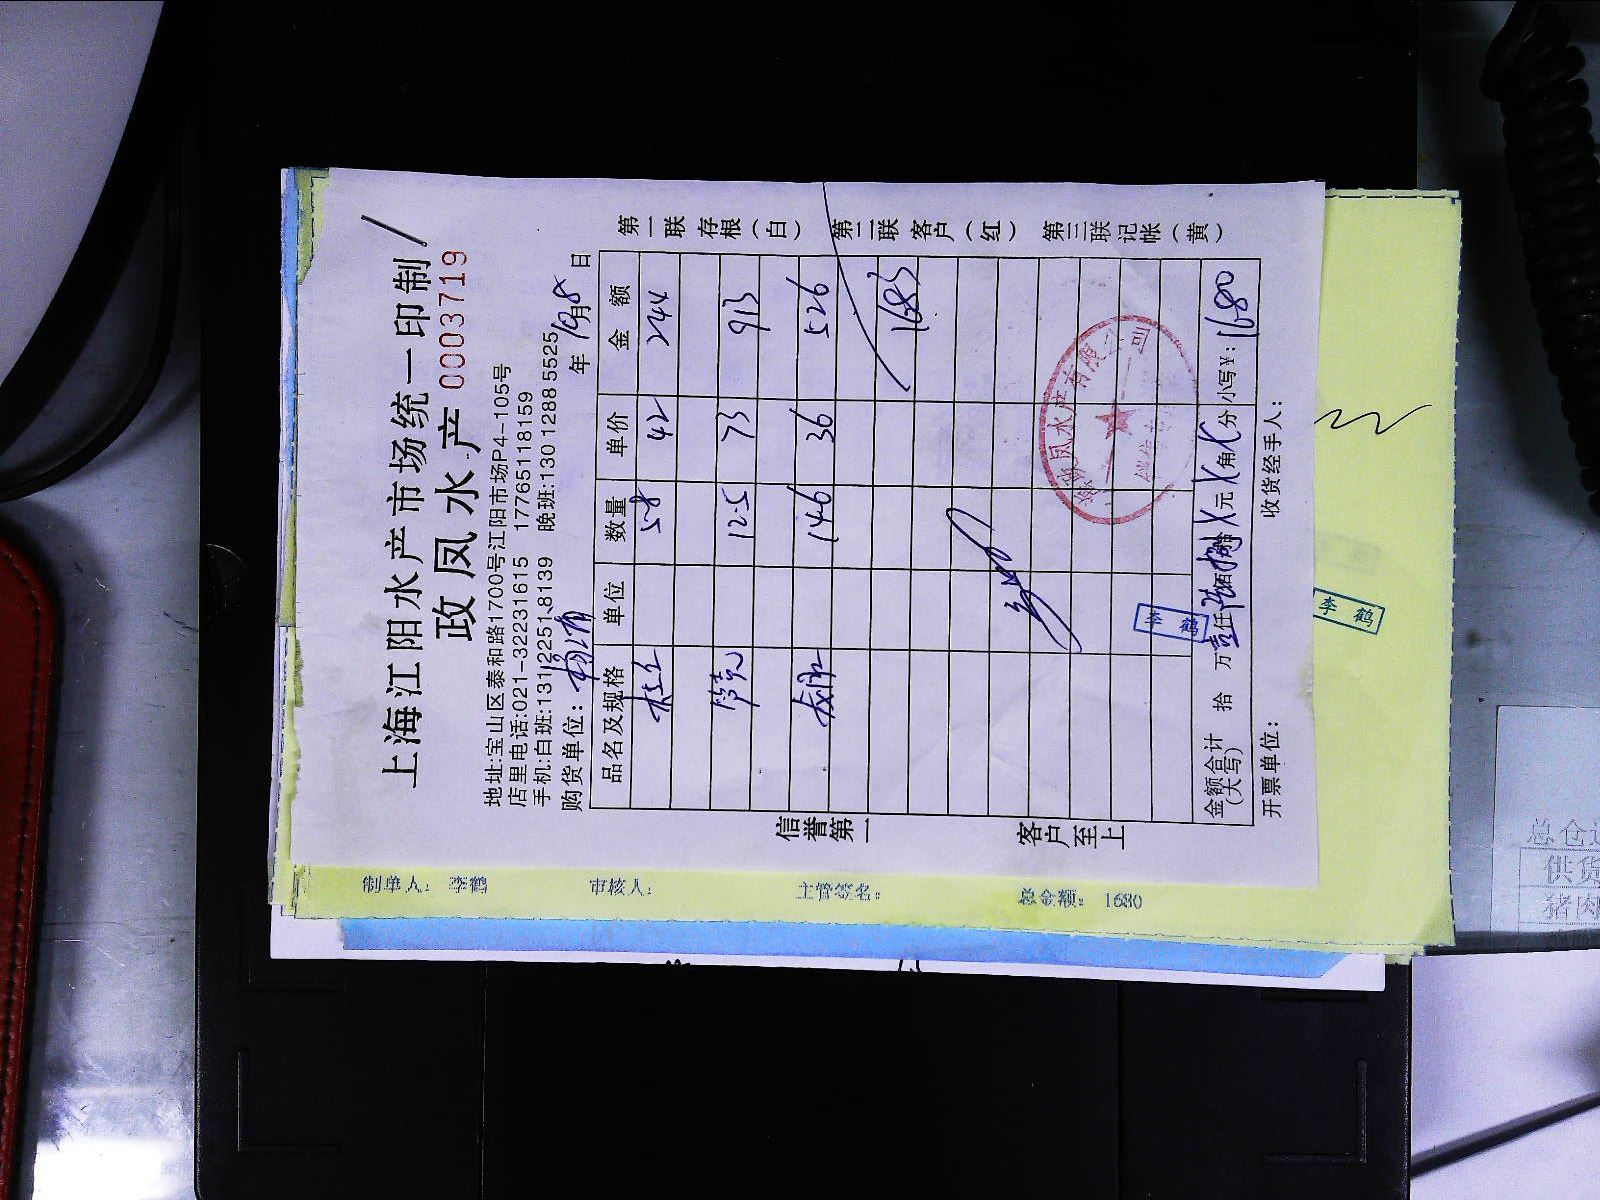 上海江阳水产市场统一印制
政凤水产 0003719
地址:宝山区泰和路1700号江阳市场P4-105号
店里电话:021-32231615 17765118159
手机:白班:131 2251 8139 晚班:130 1288 5525
购货单位: 年 10月8日
品名及规格 单位 数量 单价 金额
桂鱼 5.8 42 244
12.5 73 913
14.6 36 526
1683
金额合计(大写) 拾 万 壹仟陆佰捌拾 元 角 分 小写¥: 1680
开票单位: 收货经手人:
第一联 存根(白) 第二联 客户(红) 第三联 记帐(黄)
信誉第一
客户至上
李鹤
李鹤
制单人: 李鹤 审核人: 主管签名: 总金额: 1680
供货
猪肉